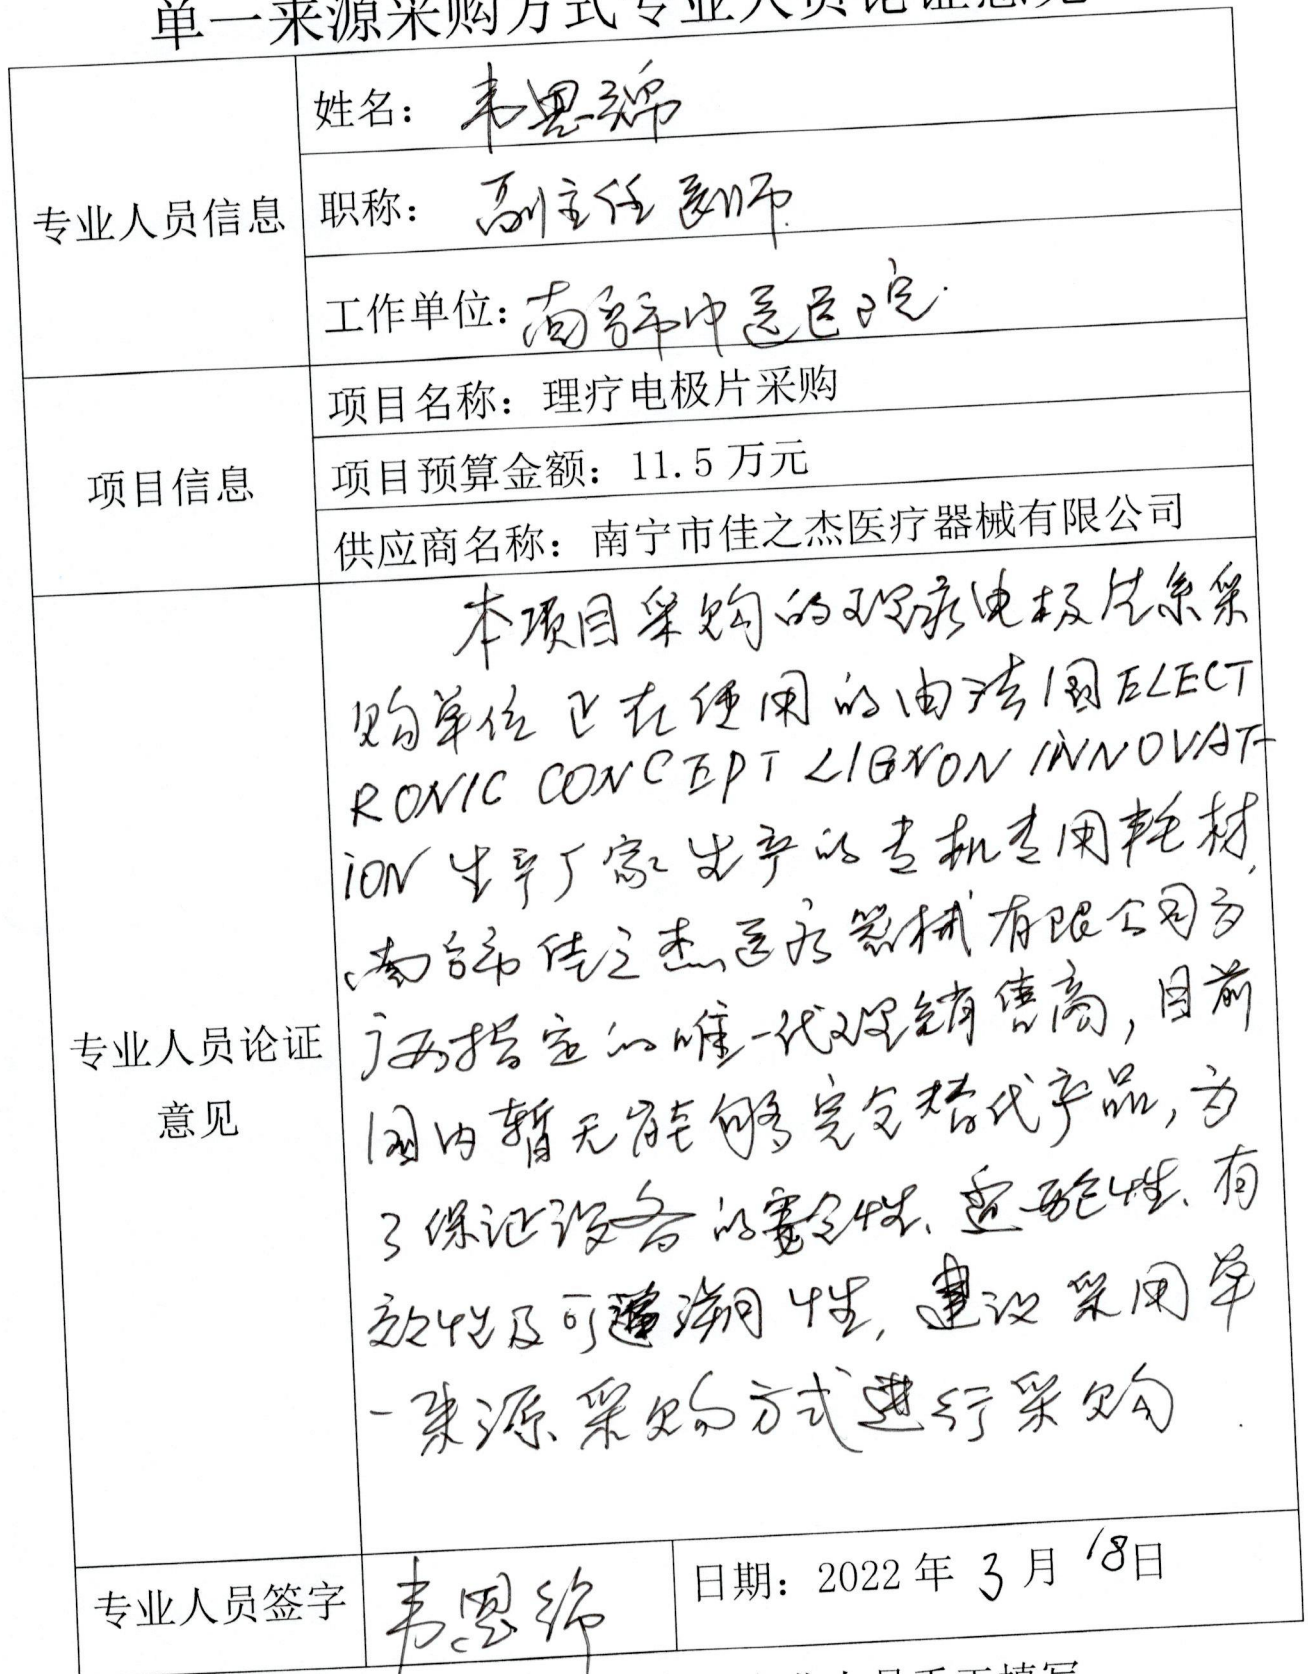 单一来源采购方式专业人员论证意见
专业人员信息
姓名：韦思绵
职称：副主任医师
工作单位：南宁市中医医院
项目信息
项目名称：理疗电极片采购
项目预算金额：11.5万元
供应商名称：南宁市佳之杰医疗器械有限公司
专业人员论证
意见
本项目采购的理疗电极片系采
购单位正在使用的由法国ELECT
RONIC CONCEPT LIGNON INNOVAT-
ION生产厂家生产的专机专用耗材,
南宁市佳之杰医疗器械有限公司为
广西指定的唯一代理销售商,目前
国内暂无能够完全替代产品,为
了保证设备的安全性、适配性、有
效性及可追溯性,建议采用单
一来源采购方式进行采购.
专业人员签字
韦思绵
日期：2022年3月18日